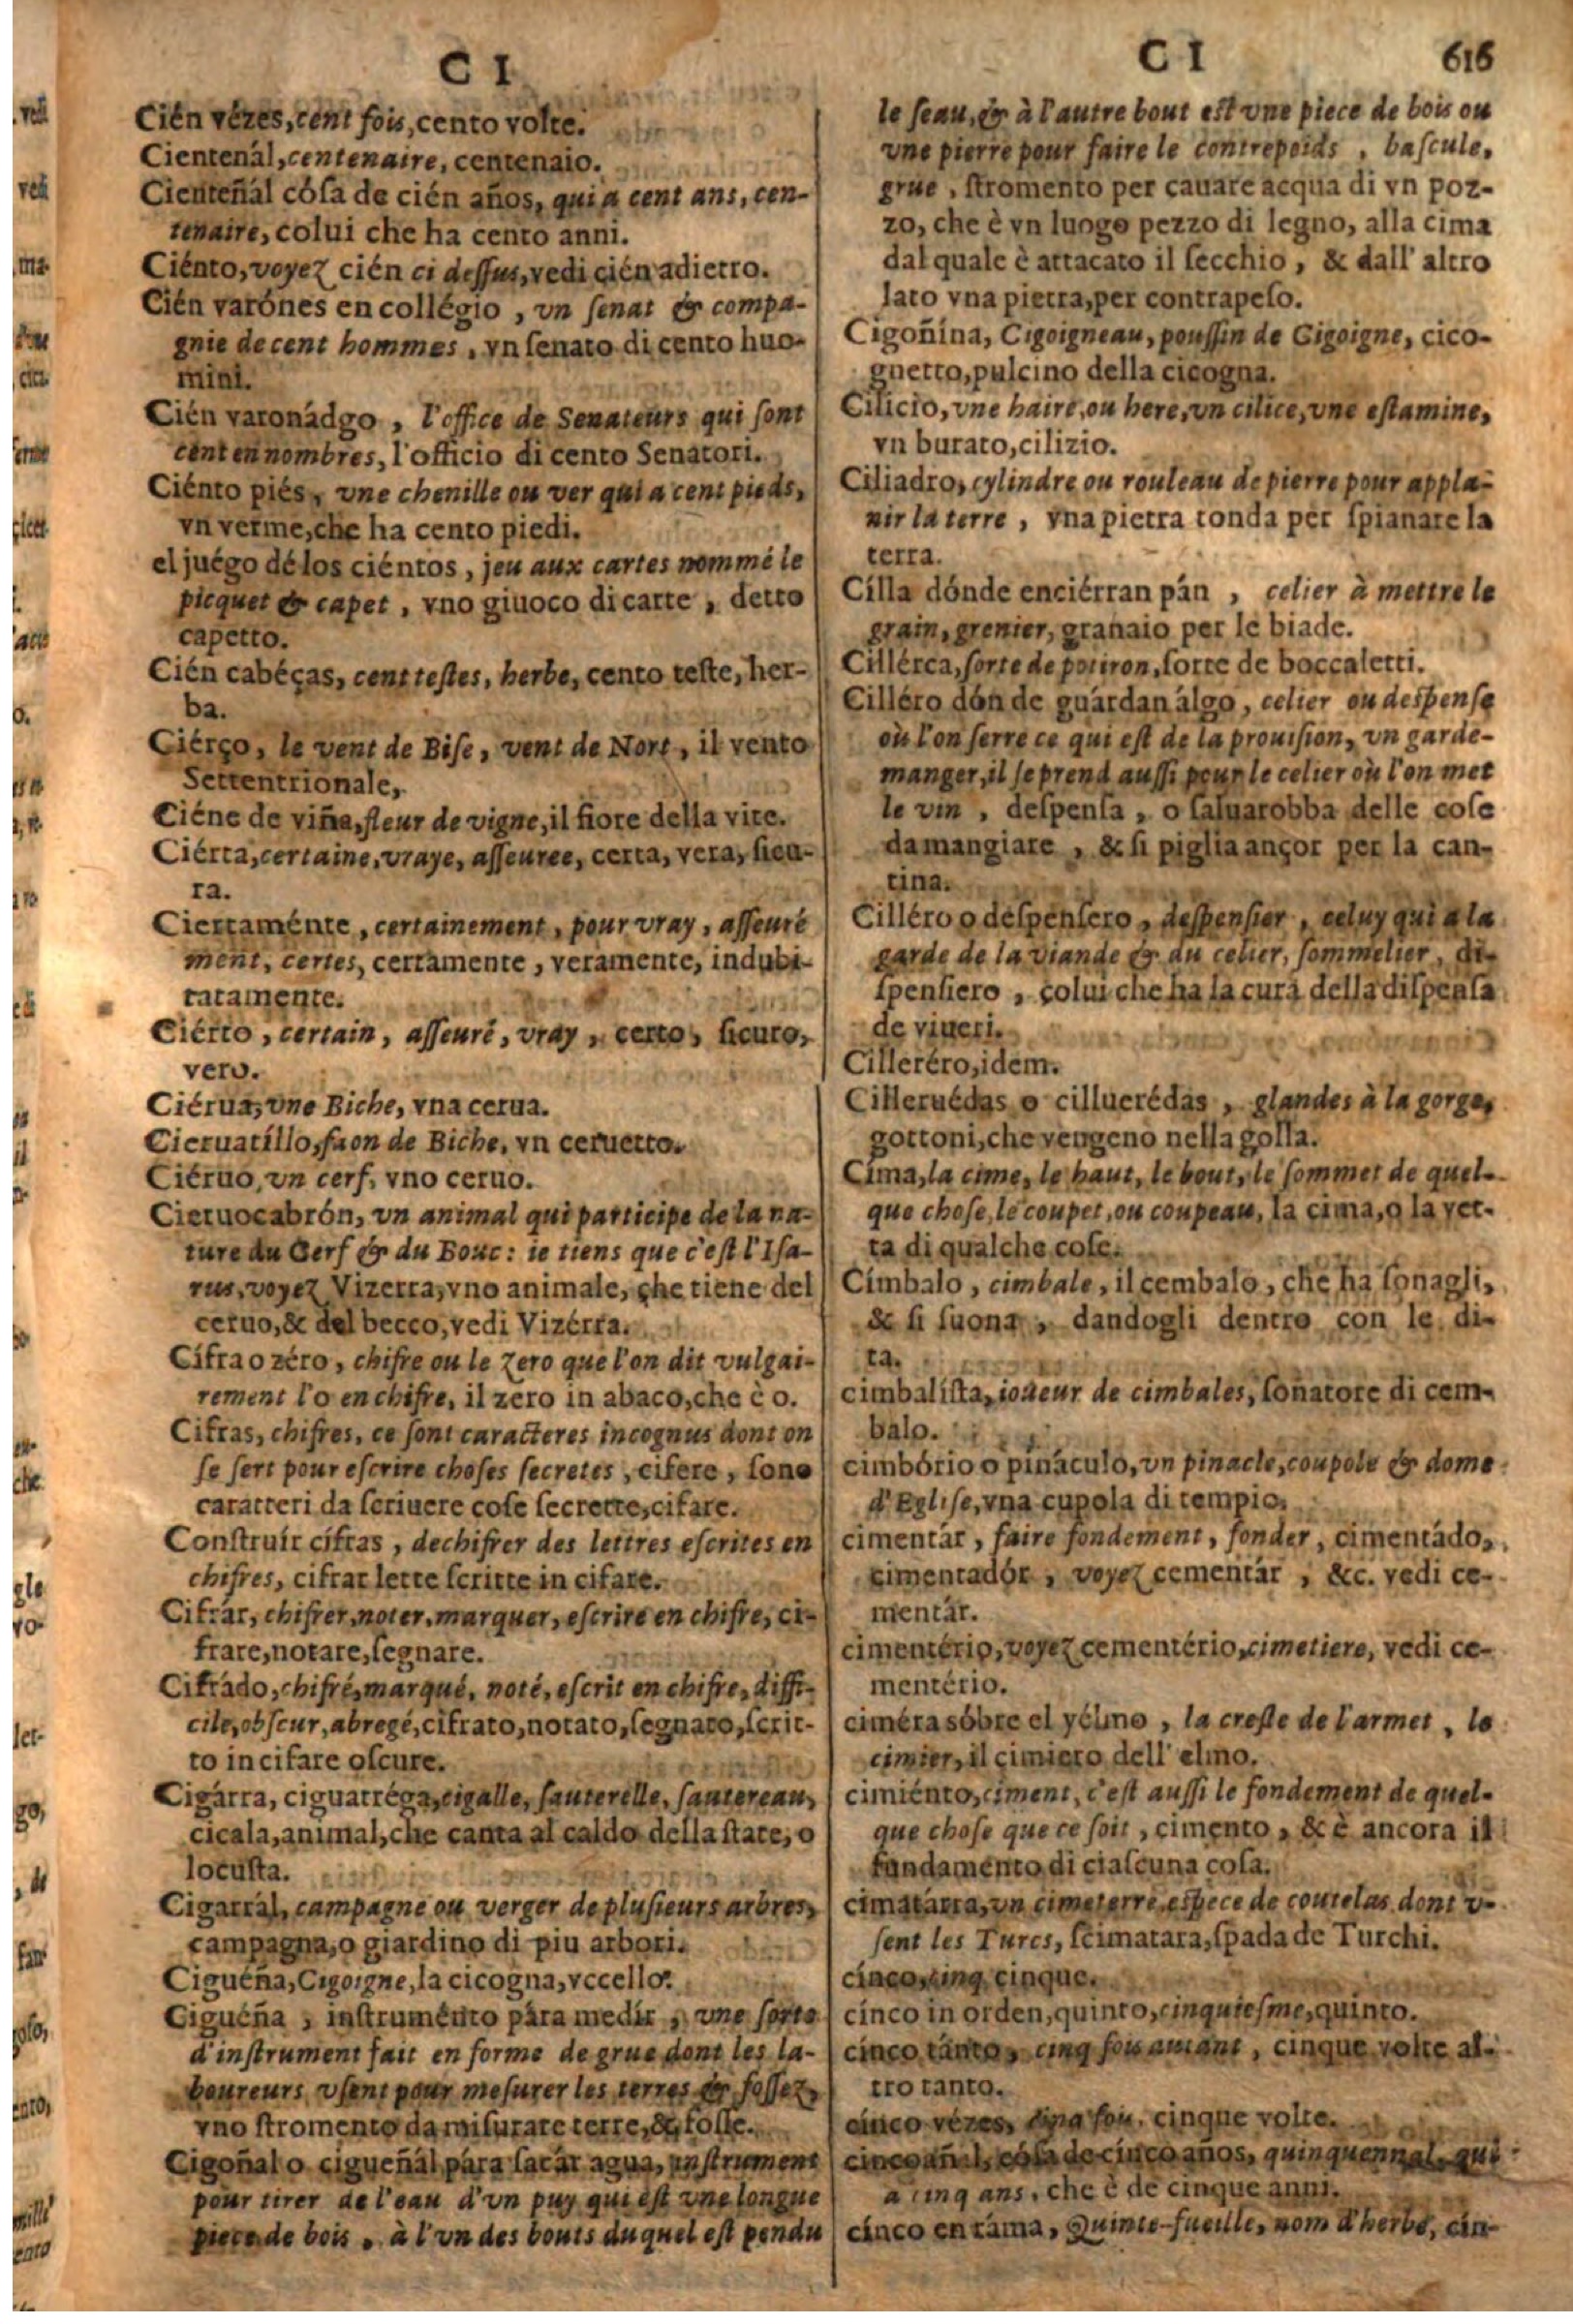 C I
Cién vézes, cent fois, cento volte.
Cientenál, centenaire, centenaio.
Cienteñál cósa de cién años, qui a cent ans, cen-
tenaire, colui che ha cento anni.
Ciénto, voyez cién ci dessus, vedi cién adietro.
Cién varónes en collégio, vn senat & compa-
gnie de cent hommes, vn senato di cento huo-
mini.
Cién varonádgo, l'office de Senateurs qui sont
cent en nombres, l'officio di cento Senatori.
Ciénto piés, vne chenille ou ver qui a cent pieds,
vn verme, che ha cento piedi.
el juégo dé los ciéntos, jeu aux cartes nommé le
picquet & capet, vno giuoco di carte, detto
capetto.
Cién cabéças, cent testes, herbe, cento teste, her-
ba.
Ciérço, le vent de Bise, vent de Nort, il vento
Settentrionale,
Ciéne de viña, fleur de vigne, il fiore della vite.
Ciérta, certaine, vraye, asseuree, certa, vera, sicu-
ra.
Ciertaménte, certainement, pour vray, asseuré
ment, certes, certamente, veramente, indubi-
tatamente.
Ciérto, certain, asseuré, vray, certo, sicuro,
vero.
Ciérua, vne Biche, vna cerua.
Cieruatíllo, faon de Biche, vn ceruetto.
Ciéruo, vn cerf, vno ceruo.
Cieruocabrón, vn animal qui participe de la na-
ture du Cerf & du Bouc: ie tiens que c'est l'Isa-
rus, voyez Vizerra, vno animale, che tiene del
ceruo, & del becco, vedi Vizérra.
Cífra o zéro, chifre ou le zero que l'on dit vulgai-
rement l'o en chifre, il zero in abaco, che è o.
Cifras, chifres, ce sont caracteres incognus dont on
se sert pour escrire choses secretes, cifere, sono
caratteri da scriuere cose secrette, cifare.
Construír cífras, dechifrer des lettres escrites en
chifres, cifrar lette scritte in cifare.
Cifrár, chifrer, noter, marquer, escrire en chifre, ci-
frare, notare, segnare.
Cifrádo, chifré, marqué, noté, escrit en chifre, diffi-
cile, obscur, abregé, cifrato, notato, segnato, scrit-
to in cifare oscure.
Cigárra, ciguarréga, cigalle, sauterelle, sautereau,
cicala, animal, che canta al caldo della state, o
locusta.
Cigarrál, campagne ou verger de plusieurs arbres,
campagna, o giardino di piu arbori.
Ciguéña, Cigoigne, la cicogna, vccello.
Ciguéña, instruménto pára medír, vne sorte
d'instrument fait en forme de grue dont les la-
boureurs vsent pour mesurer les terres & fossez,
vno stromento da misurare terre, & fosse.
Cigoñal o cigueñál pára sacár agua, instrument
pour tirer de l'eau d'vn puy qui est vne longue
piece de bois, à l'vn des bouts duquel est pendu
C I 616
le seau, & à l'autre bout est vne piece de bois ou
vne pierre pour faire le contrepoids, bascule,
grue, stromento per cauare acqua di vn poz-
zo, che è vn luogo pezzo di legno, alla cima
dal quale è attacato il secchio, & dall' altro
lato vna pietra, per contrapeso.
Cigoñína, Cigoigneau, poussin de Cigoigne, cico-
gnetto, pulcino della cicogna.
Cilicio, vne haire, ou here, vn cilice, vne estamine,
vn burato, cilizio.
Ciliadro, cylindre ou rouleau de pierre pour appla-
nir la terre, vna pietra tonda per spianare la
terra.
Cílla dónde enciérran pán, celier à mettre le
grain, grenier, granaio per le biade.
Cillérca, sorte de potiron, sorte de boccaletti.
Cilléro dón de guárdan álgo, celier ou despense
où l'on serre ce qui est de la prouision, vn garde-
manger, il se prend aussi pour le celier où l'on met
le vin, despensa, o saluarobba delle cose
da mangiare, & si piglia ançor per la can-
tina.
Cilléro o despensero, despensier, celuy qui a la
garde de la viande & du celier, sommelier, di-
spensiero, colui che ha la cura della dispensa
de viueri.
Cilleréro, idem.
Cilleruédas o cilluerédas, glandes à la gorge,
gottoni, che vengeno nella golla.
Címa, la cime, le haut, le bout, le sommet de quel-
que chose, le coupet, ou coupeau, la cima, o la vet-
ta di qualche cose.
Címbalo, cimbale, il cembalo, che ha sonagli,
& si suona, dandogli dentro con le di-
ta.
cimbalísta, ioueur de cimbales, sonatore di cem-
balo.
cimbório o pináculo, vn pinacle, coupole & dome
d'Eglise, vna cupola di tempio.
cimentár, faire fondement, fonder, cimentádo,
cimentadór, voyez cementár, &c. vedi ce-
mentár.
cimentério, voyez cementério, cimetiere, vedi ce-
mentério.
ciméra sóbre el yélmo, la creste de l'armet, le
cimier, il cimiero dell' elmo.
cimiénto, ciment, c'est aussi le fondement de quel-
que chose que ce soit, cimento, & è ancora il
fundamento di ciascuna cosa.
cimatárra, vn cimeterre, espece de coutelas dont v-
sent les Turcs, scimatara, spada de Turchi.
cínco, cinq, cinque.
cínco in orden, quinto, cinquiesme, quinto.
cínco tánto, cinq fois autant, cinque volte al-
tro tanto.
cínco vézes, cinq fois, cinque volte.
cincoañal, cósa de cínco años, quinquennal, qui
a cinq ans, che è de cinque anni.
cínco en ráma, Quinte-fueille, nom d'herbe, cin-